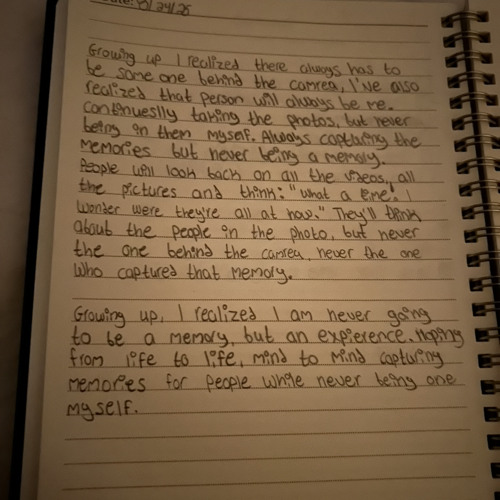 Date: 8/24/25
Growing up I realized there always has to
be some one behind the camrea, I've also
realized that person will always be me.
Continueslly taking the photos, but never
being in them myself. Always capturing the
memories but never being a memory.
People will look back on all the videos, all
the pictures and think: "What a time! I
wonder were they're all at now." They'll think
about the people in the photo, but never
the one behind the camrea, never the one
who captured that memory.
Growing up, I realized I am never going
to be a memory, but an expierence. Hoping
from life to life, mind to mind capturing
memories for people while never being one
myself.